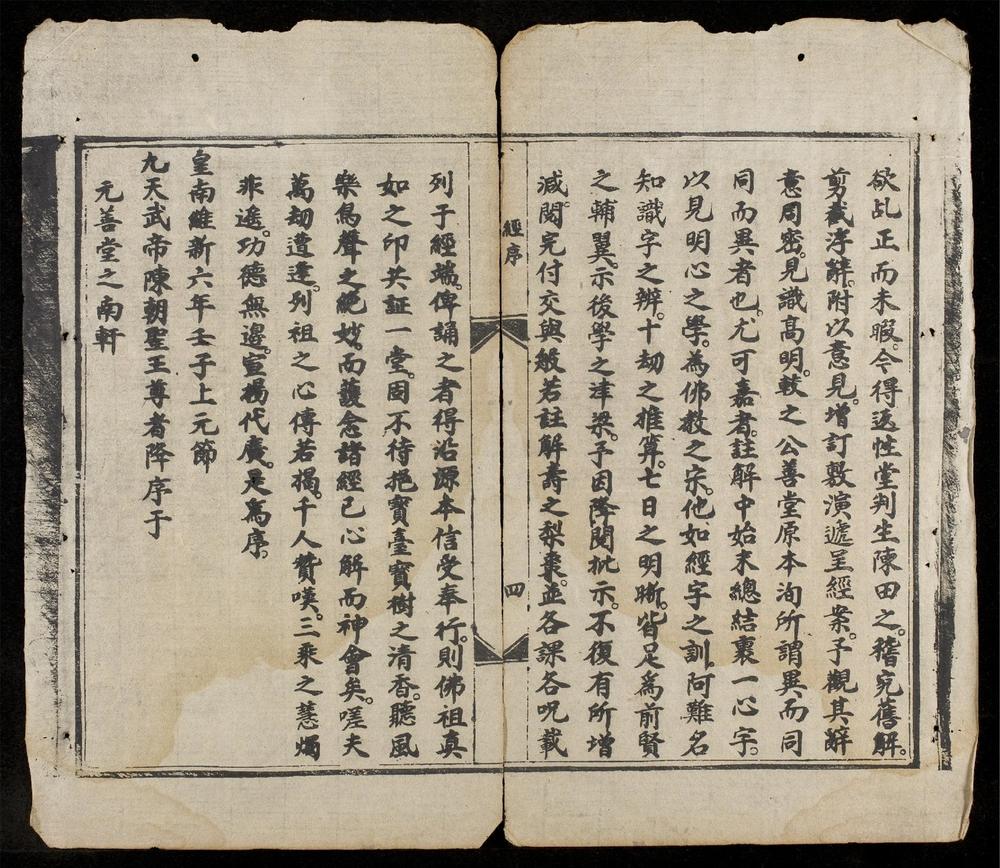 欲乩正而未暇。今得逸性堂判生陳田之。稽究舊解。
剪截浮辭。附以意見。增訂敷演遞呈經案。予觀其辭
意周密。見識高明。較之公善堂原本洵所謂異而同
同而異者也。尤可嘉者。註解中始末總結裹一心字。
以見明心之學。為佛教之宗。他如經字之訓。阿難名
知識字之辨。十劫之推算。七日之明晰。皆足為前賢
之輔翼。示後學之津梁。予因降閱批示。不復有所增
減。閱完付交與般若註解壽之梨棗。並各課各呪載
經序
四
列于經端。俾誦之者得沿源本信受奉行。則佛祖真
如之印共証一堂。固不待挹寶臺寶樹之清香。聽風
樂鳥聲之絕妙。而護念諸經已心解而神會矣。嗟夫
萬劫遺逢。列祖之心傳若揭。千人贊嘆。三乘之慧燭
非遙。功德無邊。宣揚代廣。是為序。
皇南維新六年壬子上元節
九天武帝陳朝聖王尊者降序于
元善堂之南軒